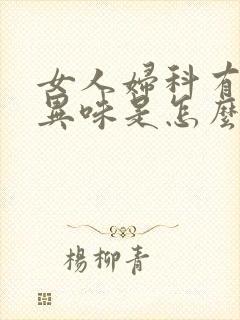 女人婦科有
異味是怎麼
楊柳青